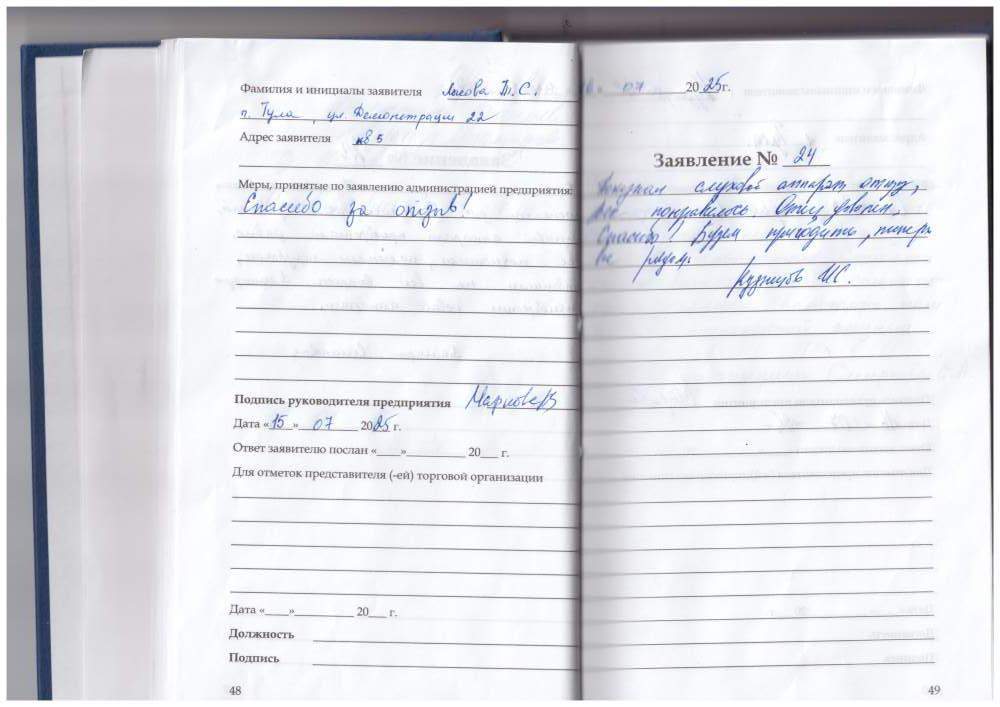 Фамилия и инициалы заявителя Лысова Т.С.
п. Тула, ул. Демонстрации 22
Адрес заявителя кв 5
Меры, принятые по заявлению администрацией предприятия:
Спасибо за отзыв!
Подпись руководителя предприятия
Дата «15» 07 2025 г.
Ответ заявителю послан «____»__________ 20___ г.
Для отметок представителя (-ей) торговой организации
Дата «____»__________ 20___ г.
Должность
Подпись
48
07 2025г.
Заявление № 24
Покупали слуховой аппарат отцу,
все понравилось. Отец доволен.
Спасибо! Будем приходить, теперь
вы рядом.
И.С.
49